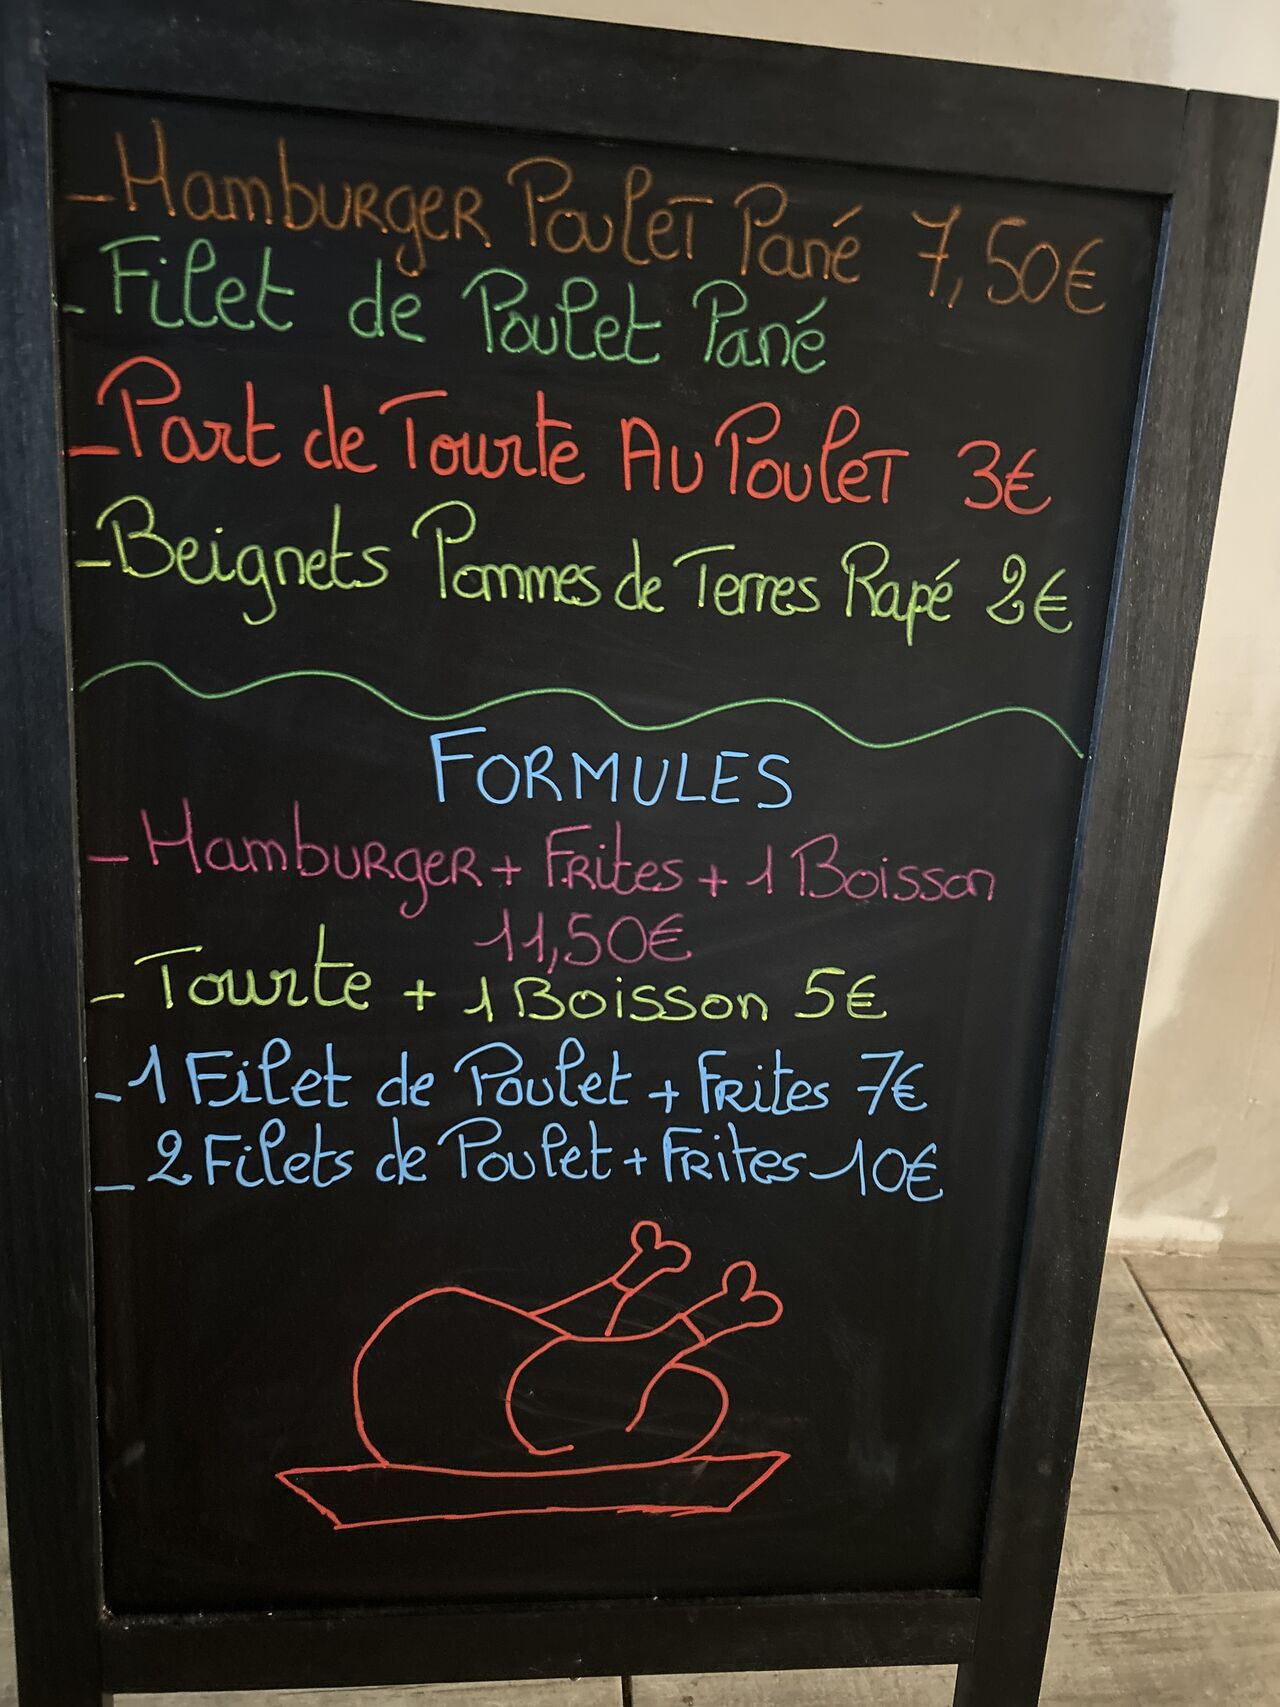 - Hamburger Poulet Pané 7,50€
- Filet de Poulet Pané
- Part de Tourte Au Poulet 3€
- Beignets Pommes de Terres Rapé 2€
FORMULES
- Hamburger + Frites + 1 Boisson
11,50€
- Tourte + 1 Boisson 5€
- 1 Filet de Poulet + Frites 7€
- 2 Filets de Poulet + Frites 10€